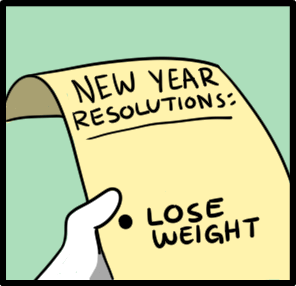 NEW YEAR
RESOLUTIONS:
• LOSE
WEIGHT